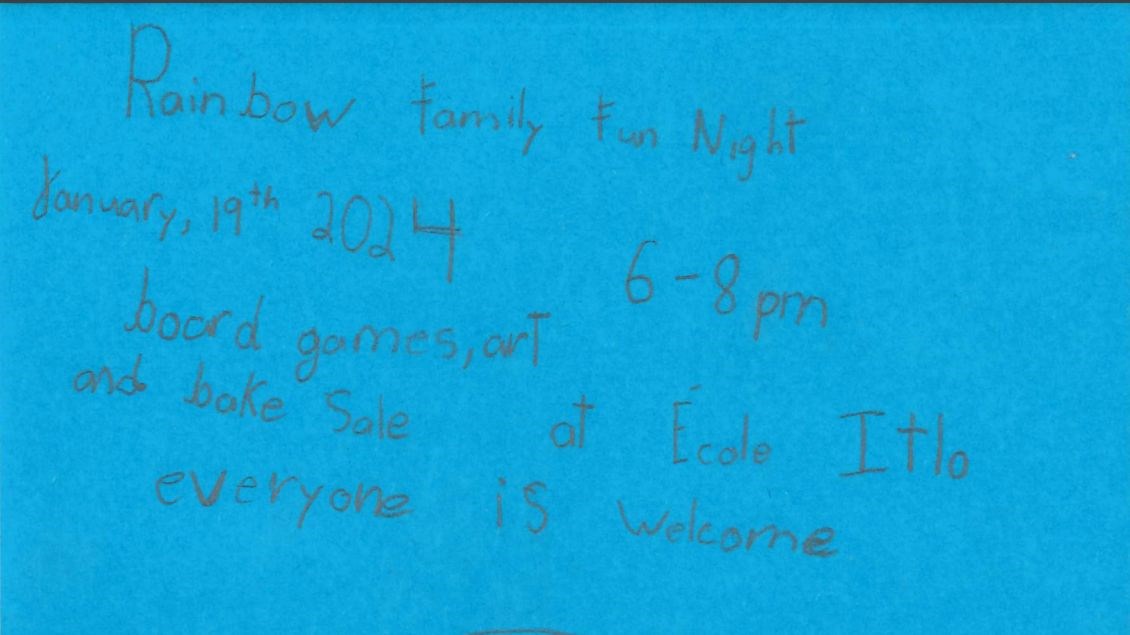 Rainbow Family Fun Night
January, 19th 2024
6-8pm
board games, art
and bake Sale
at École Itlo
everyone is welcome